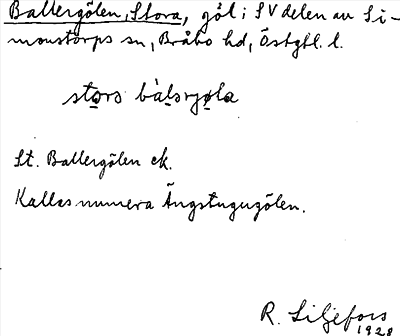 Ballergölen, Stora, göl i SV delen av Si-
monstorps sn, Bråbo hd, Östgtl. l.
St. Ballergölen ek.
Kallas numera Ängstugugölen.
R. Liljefors
1928